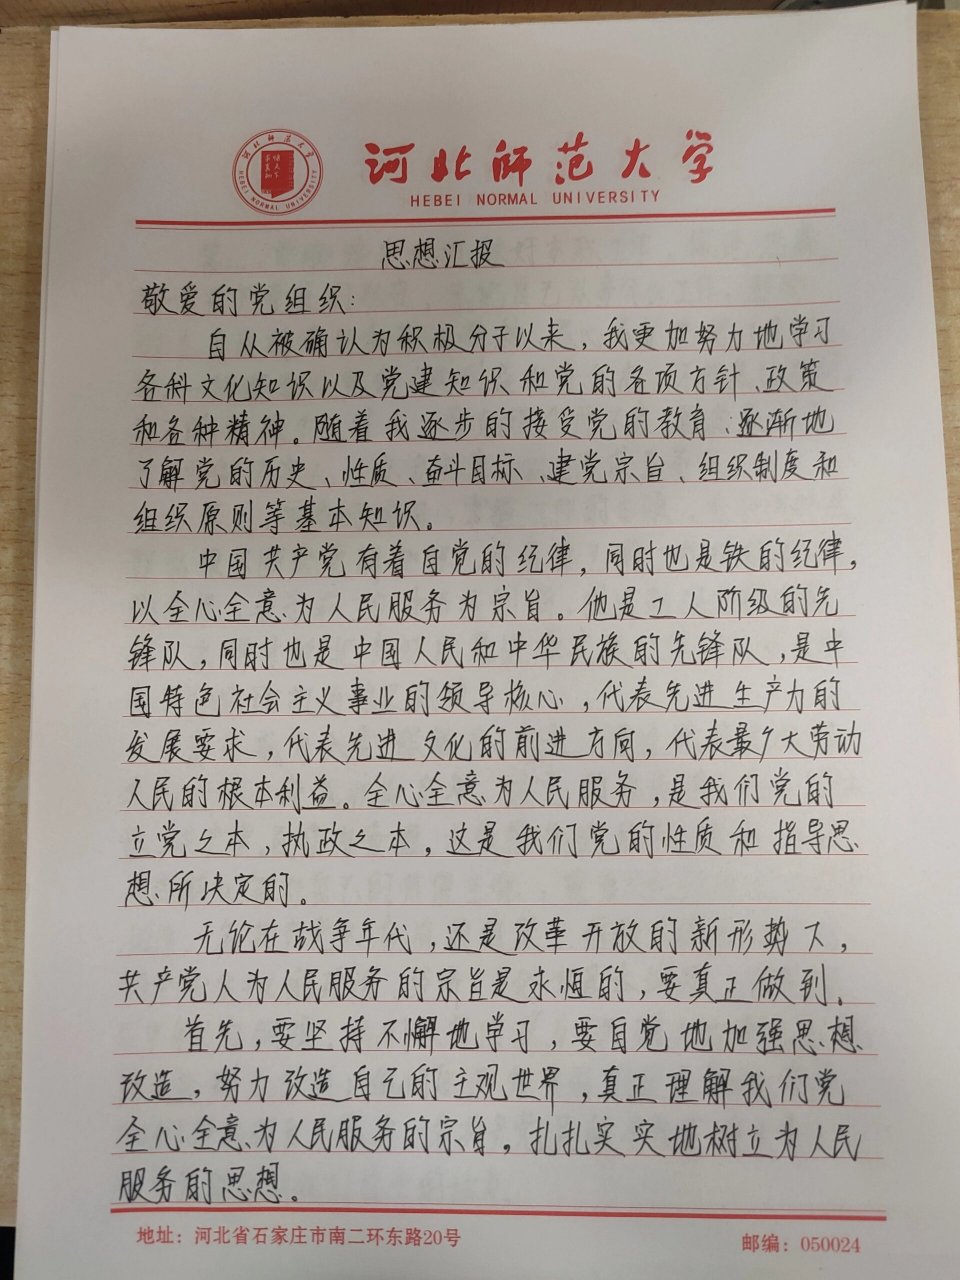 河北师范大学
HEBEI NORMAL UNIVERSITY
HEBEI NORMAL UNIVERSITY
思想汇报
敬爱的党组织：
自从被确认为积极分子以来，我更加努力地学习
各科文化知识以及党建知识和党的各项方针、政策
和各种精神。随着我逐步的接受党的教育，逐渐地
了解党的历史、性质、奋斗目标、建党宗旨、组织制度和
组织原则等基本知识。
中国共产党有着自觉的纪律，同时也是铁的纪律，
以全心全意为人民服务为宗旨。他是工人阶级的先
锋队，同时也是中国人民和中华民族的先锋队，是中
国特色社会主义事业的领导核心，代表先进生产力的
发展要求，代表先进文化的前进方向，代表最广大劳动
人民的根本利益。全心全意为人民服务，是我们党的
立党之本，执政之本，这是我们党的性质和指导思
想所决定的。
无论在战争年代，还是改革开放的新形势下，
共产党人为人民服务的宗旨是永恒的，要真正做到。
首先，要坚持不懈地学习，要自觉地加强思想
改造，努力改造自己的主观世界，真正理解我们党
全心全意为人民服务的宗旨。扎扎实实地树立为人民
服务的思想。
地址：河北省石家庄市南二环东路20号
邮编：050024